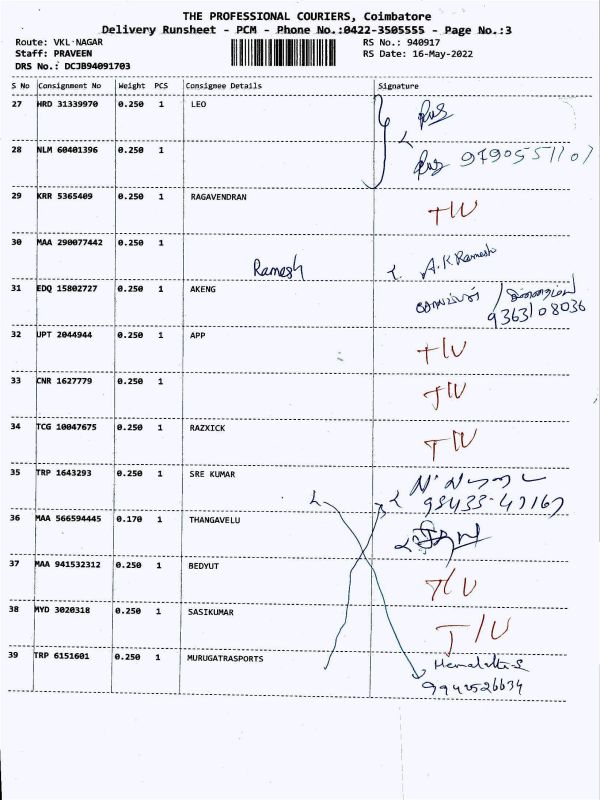 THE PROFESSIONAL COURIERS, Coimbatore
Delivery Runsheet - PCM - Phone No.:0422-3505555 - Page No.:3
Route: VKL-NAGAR RS No.: 940917
Staff: PRAVEEN RS Date: 16-May-2022
DRS No.: DCJB94091703
S No Consignment No Weight PCS Consignee Details Signature
27 HRD 31339970 0.250 1 LEO
28 NLM 60401396 0.250 1 9790551107
29 KRR 5365409 0.250 1 RAGAVENDRAN T/U
30 MAA 290077442 0.250 1 Ramesh A.K Ramesh
31 EDQ 15802727 0.250 1 AKENG
9363108036
32 UPT 2044944 0.250 1 APP T/U
33 CNR 1627779 0.250 1 T/U
34 TCG 10047675 0.250 1 RAZXICK T/U
35 TRP 1643293 0.250 1 SRE KUMAR
36 MAA 566594445 0.170 1 THANGAVELU
37 MAA 941532312 0.250 1 BEDYUT T/U
38 MYD 3020318 0.250 1 SASIKUMAR T/U
39 TRP 6151601 0.250 1 MURUGATRASPORTS